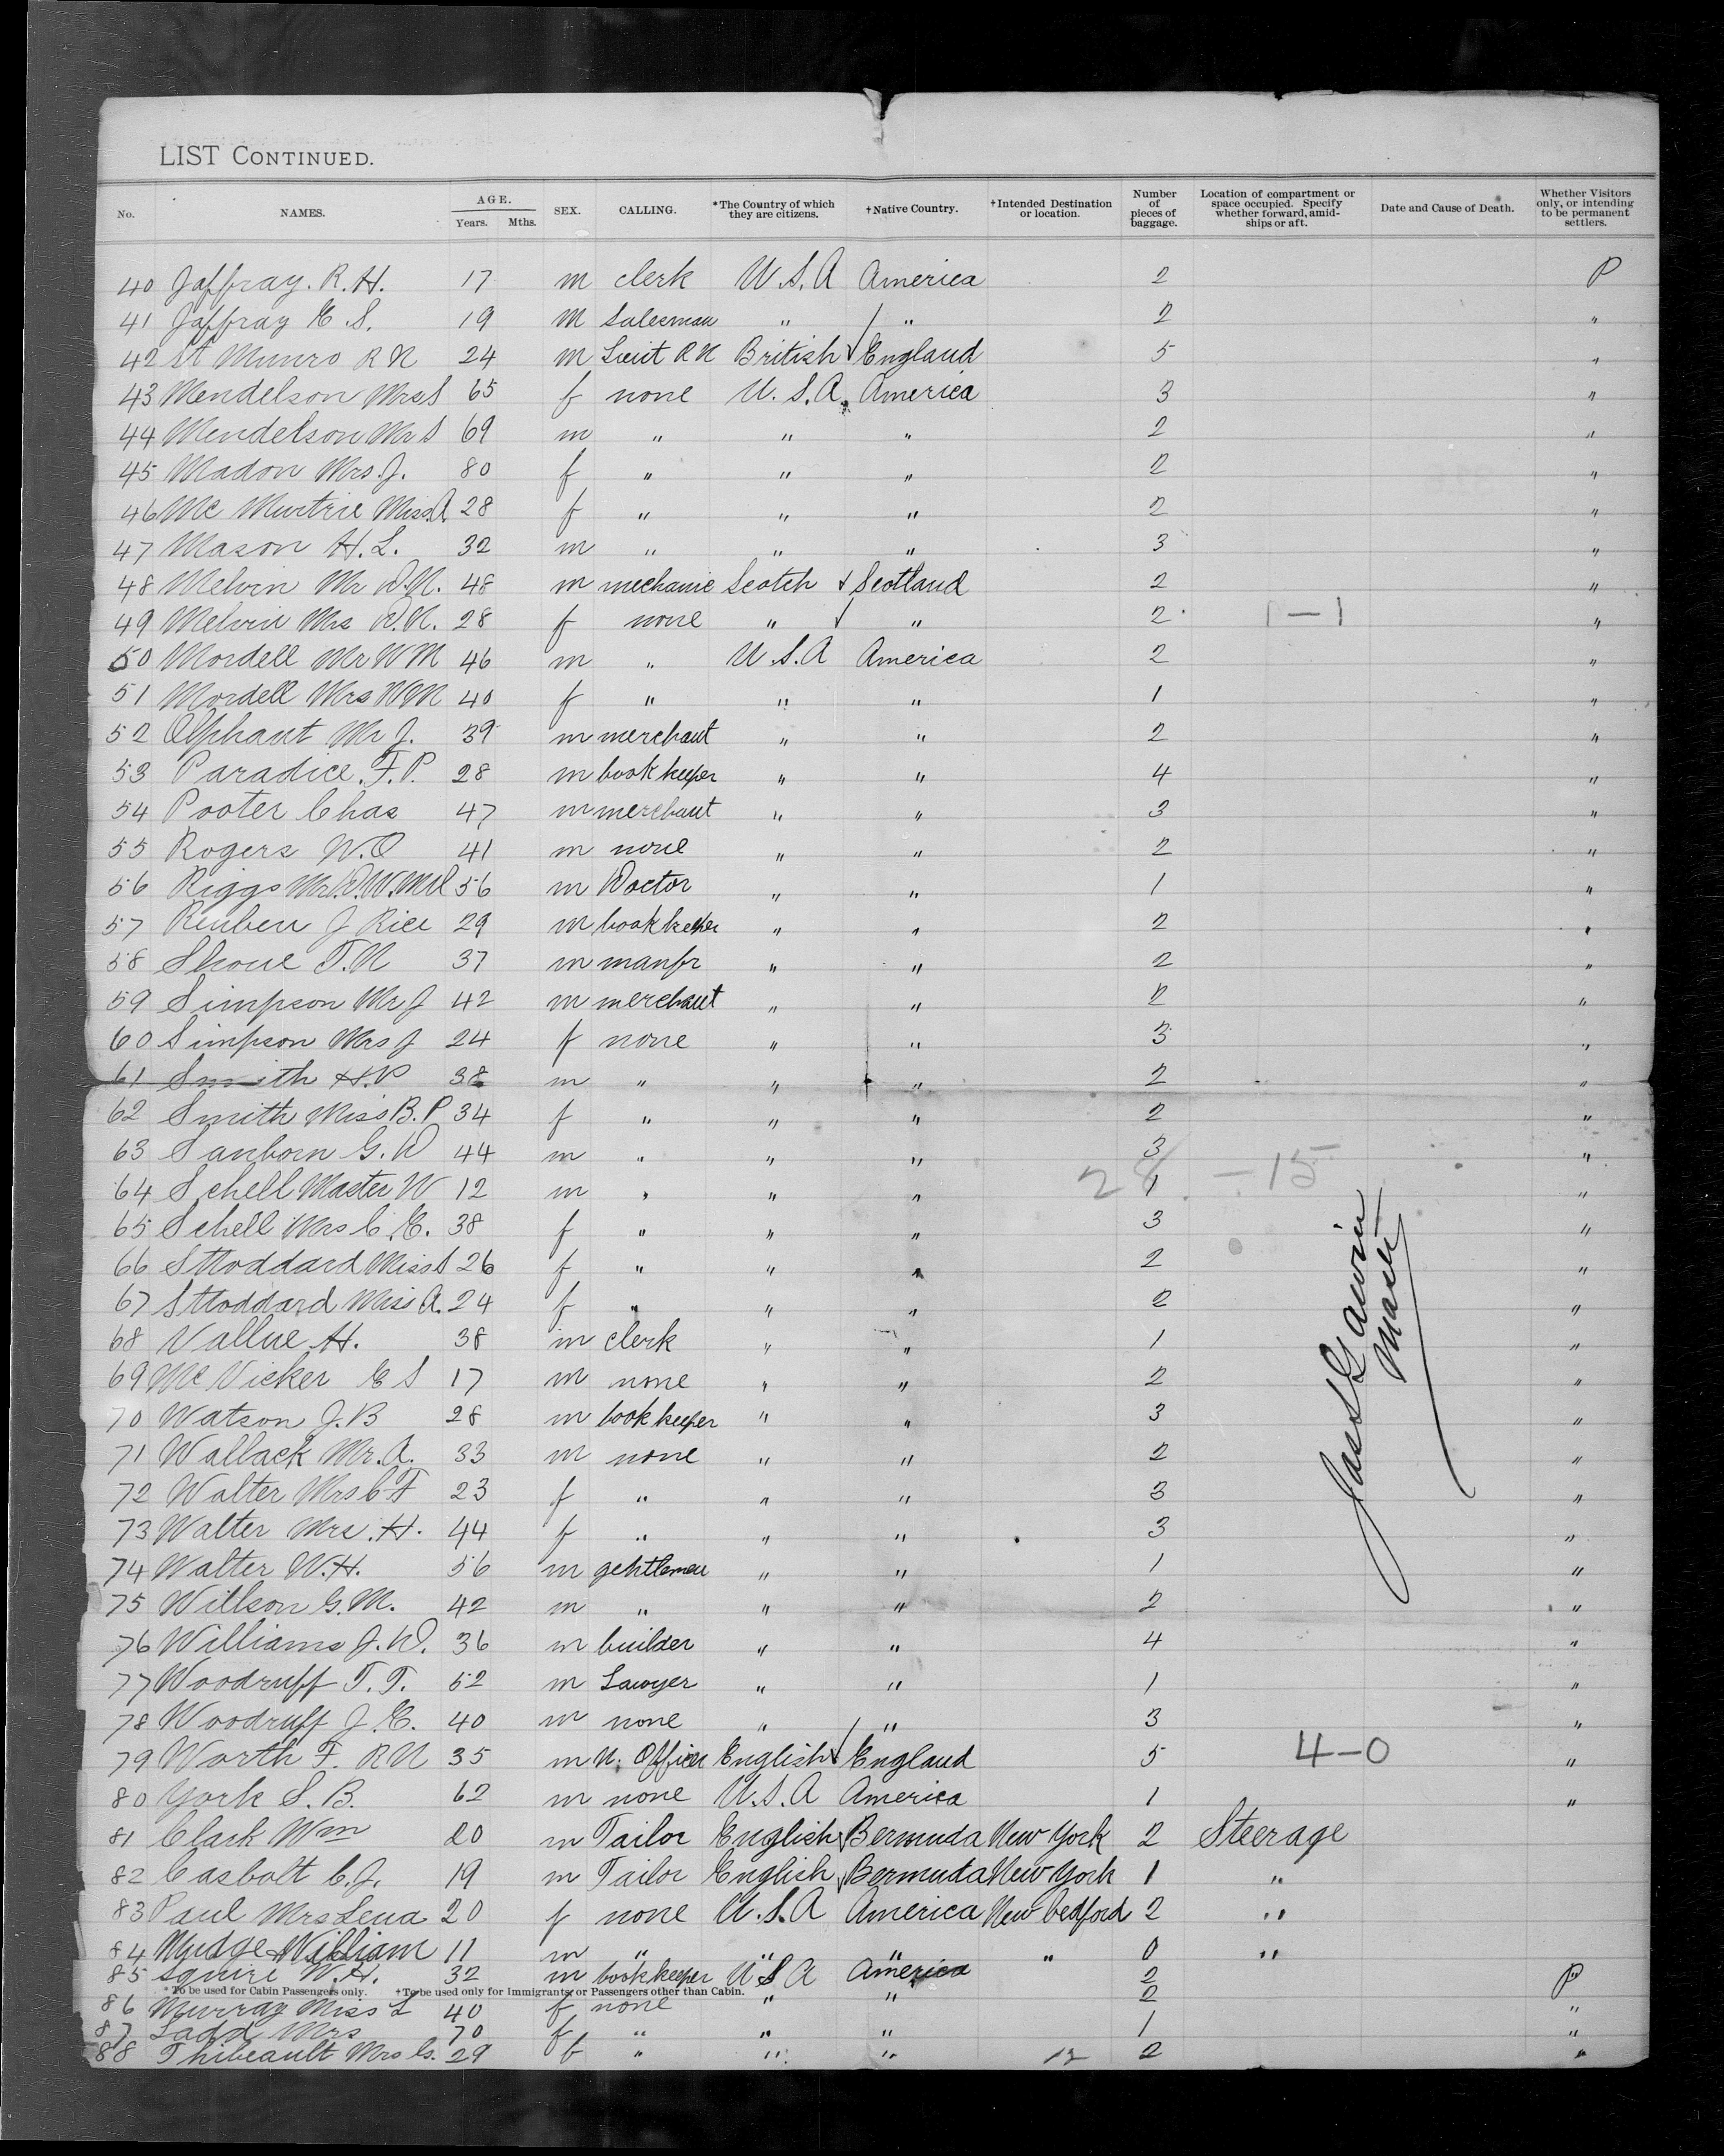 LIST CONTINUED.
No. NAMES. AGE. Years. Mths. SEX. CALLING. *The Country of which they are citizens. †Native Country. †Intended Destination or location. Number of pieces of baggage. Location of compartment or space occupied. Specify whether forward, amidships or aft. Date and Cause of Death. Whether Visitors only, or intending to be permanent settlers.
40 Jaffray. R. H. 17 m clerk U.S.A America 2 P
41 Jaffray E. S. 19 M Salesman " " 2 "
42 Munro R N 24 m Lieut R N British England 5 "
43 Mendelson Mrs S 65 f none U.S.A. America 3 "
44 Mendelson Mr S 69 m " " " 2 "
45 Madon Mrs. J. 80 f " " " 2 "
46 Mc Murtrie Miss A. 28 f " " " 2 "
47 Mason H. L. 32 m " " " 3 "
48 Melvin Mr D.N. 48 m mechanic Scotch Scotland 2 "
49 Melvin Mrs D.N. 28 f none " " 2 1-1 "
50 Mordell Mr W M 46 m " U.S.A America 2 "
51 Mordell Mrs W M 40 f " " " 1 "
52 Olphant Mr J. 39 m merchant " " 2 "
53 Paradice. F. P. 28 m book keeper " " 4 "
54 Pooter Chas 47 m merchant " " 3 "
55 Rogers W. O 41 m none " " 2 "
56 Riggs Mr. D.W. MD 56 m Doctor " " 1 "
57 Reuben J Rice 29 m book keeper " " 2 "
58 Shoue T. N 37 m manfr " " 2 "
59 Simpson Mr J 42 m merchant " " 2 "
60 Simpson Mrs J 24 f none " " 3 "
61 Smith H. P 38 m " " " 2 "
62 Smith Miss B. P 34 f " " " 2 "
63 Sanborn G. D 44 m " " " 3 "
64 Schell Master W 12 m " " " 1 28 - 15 "
65 Schell Mrs C. E. 38 f " " " 3 "
66 Stoddard Miss S 26 f " " " 2 "
67 Stoddard Miss A. 24 f " " " 2 "
68 Vallue H. 38 m clerk " " 1 "
69 Mc Vicker E S 17 m none " " 2 "
70 Watson J. B 28 m book keeper " " 3 "
71 Wallack Mr. A. 33 m none " " 2 "
72 Walter Mrs C F 23 f " " " 3 "
73 Walter Mrs. H. 44 f " " " 3 "
74 Walter W. H. 56 m gentleman " " 1 "
75 Willson G. M. 42 m " " " 2 "
76 Williams J. D. 36 m builder " " 4 "
77 Woodruff T. T. 52 m Lawyer " " 1 "
78 Woodruff J. E. 40 m none " " 3 "
79 Worth F. R N 35 m N. Officer English England 5 4-0 "
80 York S. B. 62 m none U.S.A America 1 "
81 Clark Wm 20 m Tailor English Bermuda New York 2 Steerage
82 Casbolt C. J. 19 m Tailor English Bermuda New York 1 "
83 Paul Mrs Lena 20 f none U.S.A America New bedford 2 "
84 Mudge William 11 m " " " " 0 "
85 Squire W. H. 32 m book keeper U S A America 2 P
* To be used for Cabin Passengers only. †To be used only for Immigrants, or Passengers other than Cabin.
86 Murray Miss L 40 f none " " 2 "
87 Ladd Mrs 70 f " " " 1 "
88 Thibeault Mrs G. 29 f " " " 12 2 "